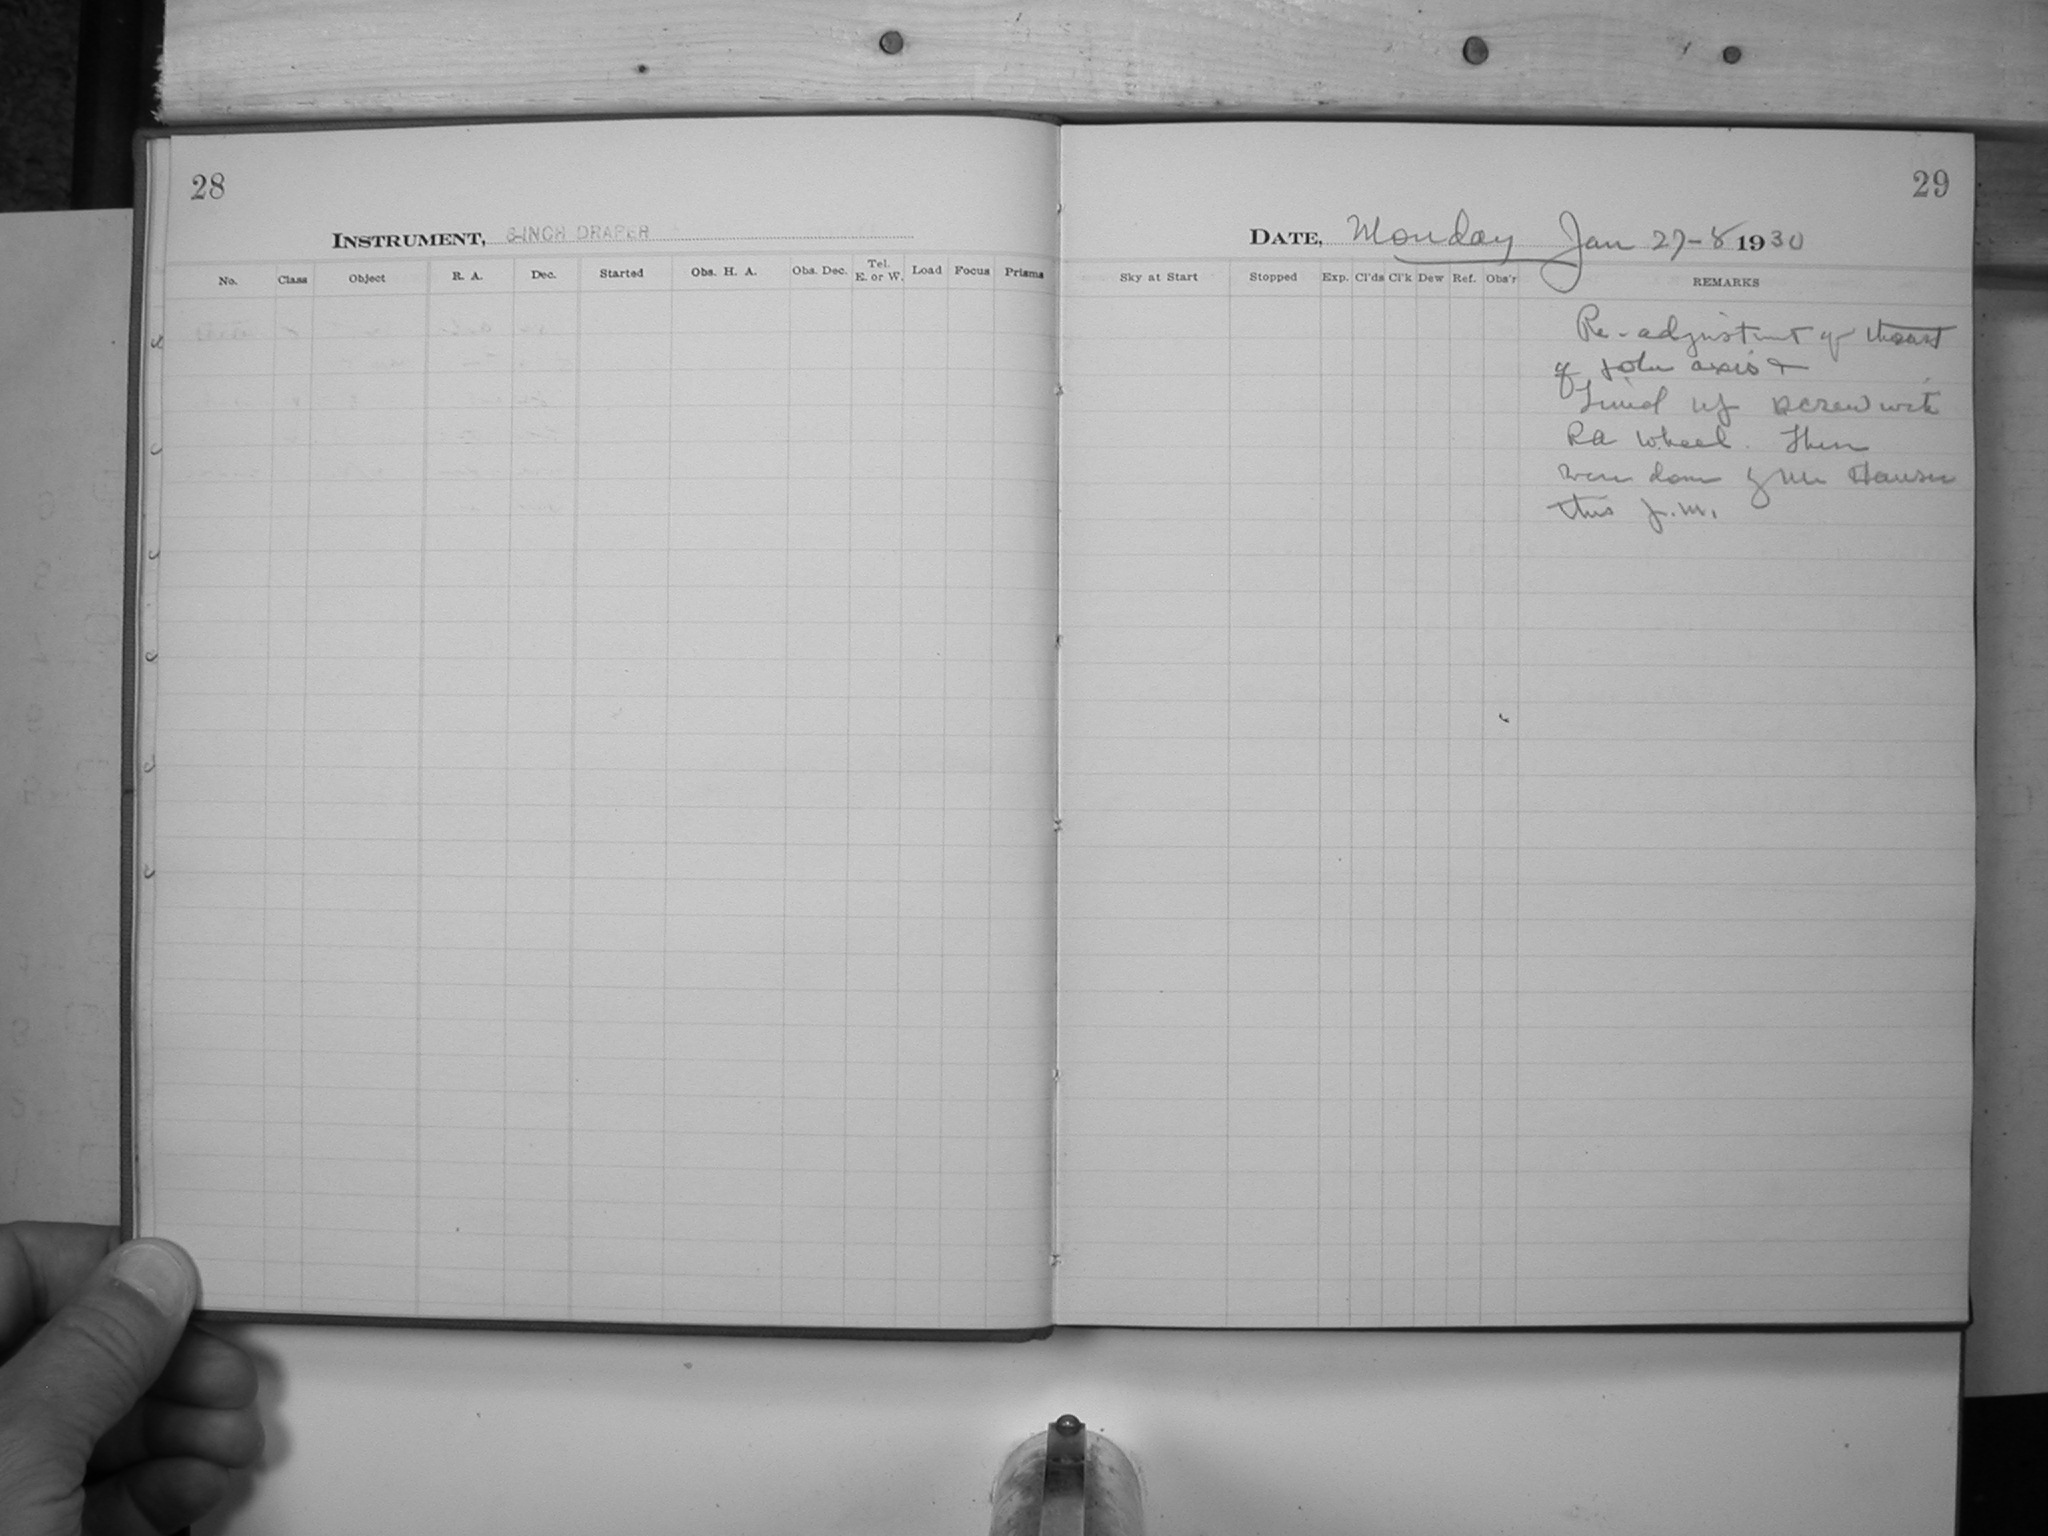 28
INSTRUMENT, 8-INCH DRAPER
No. Class Object R. A. Dec. Started Obs. H. A. Obs. Dec. Tel. E. or W. Load Focus Prisms
29
DATE, Monday Jan 27-8 1930
Sky at Start Stopped Exp. Cl'ds Cl'k Dew Ref. Obs'r REMARKS
Re-adjustment of thrust
of polar axis &
lined up screw with
RA wheel. These
were done by Mr Hauser
this p.m.